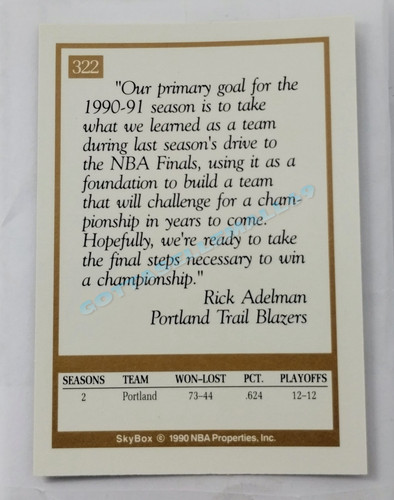 322
"Our primary goal for the
1990-91 season is to take
what we learned as a team
during last season's drive to
the NBA Finals, using it as a
foundation to build a team
that will challenge for a cham-
pionship in years to come.
Hopefully, we're ready to take
the final steps necessary to win
a championship."
Rick Adelman
Portland Trail Blazers
SEASONS TEAM WON–LOST PCT. PLAYOFFS
2 Portland 73–44 .624 12–12
SkyBox © 1990 NBA Properties, Inc.